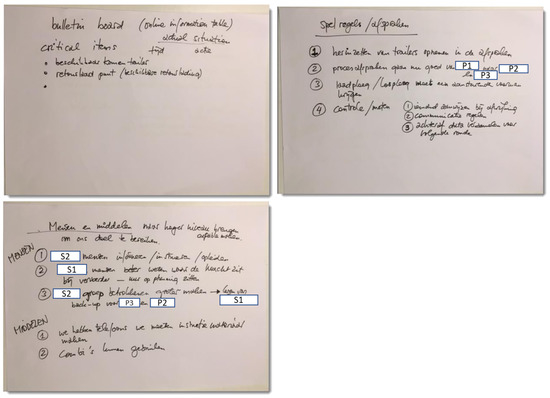 bulletin board (online information table)
critical items
actual situation
tijd
actie
• beschikbare kannen trailer
• retourlaad punt (beschikbare retourlading)
•
Spel regels / afspraken
① her inzetten van trailers opnemen in de afspraken
② proces afspraken gaan nu goed van P1 naar P2
P3
③ laadplaats / losplaats moet een aansturende
krijgen
④ controle / meten
① iemand aanwijzen bij
② communicatie regelen
③ achteraf data verzamelen voor
volgende ronde
Mensen en middelen naar hoger niveau brengen
om ons doel te bereiken.
MENSEN
① S2 mensen informeren / instrueren / opleiden
② S1 mensen beter weten waar de kracht zit
bij vervoerder – meer op planning zitten
③ S2 groep betrokkenen groter maken → S1
back-up voor P3 en P2
MIDDELEN
① we hebben telefoons we moeten instructie materiaal
maken
② combi's kunnen gebruiken